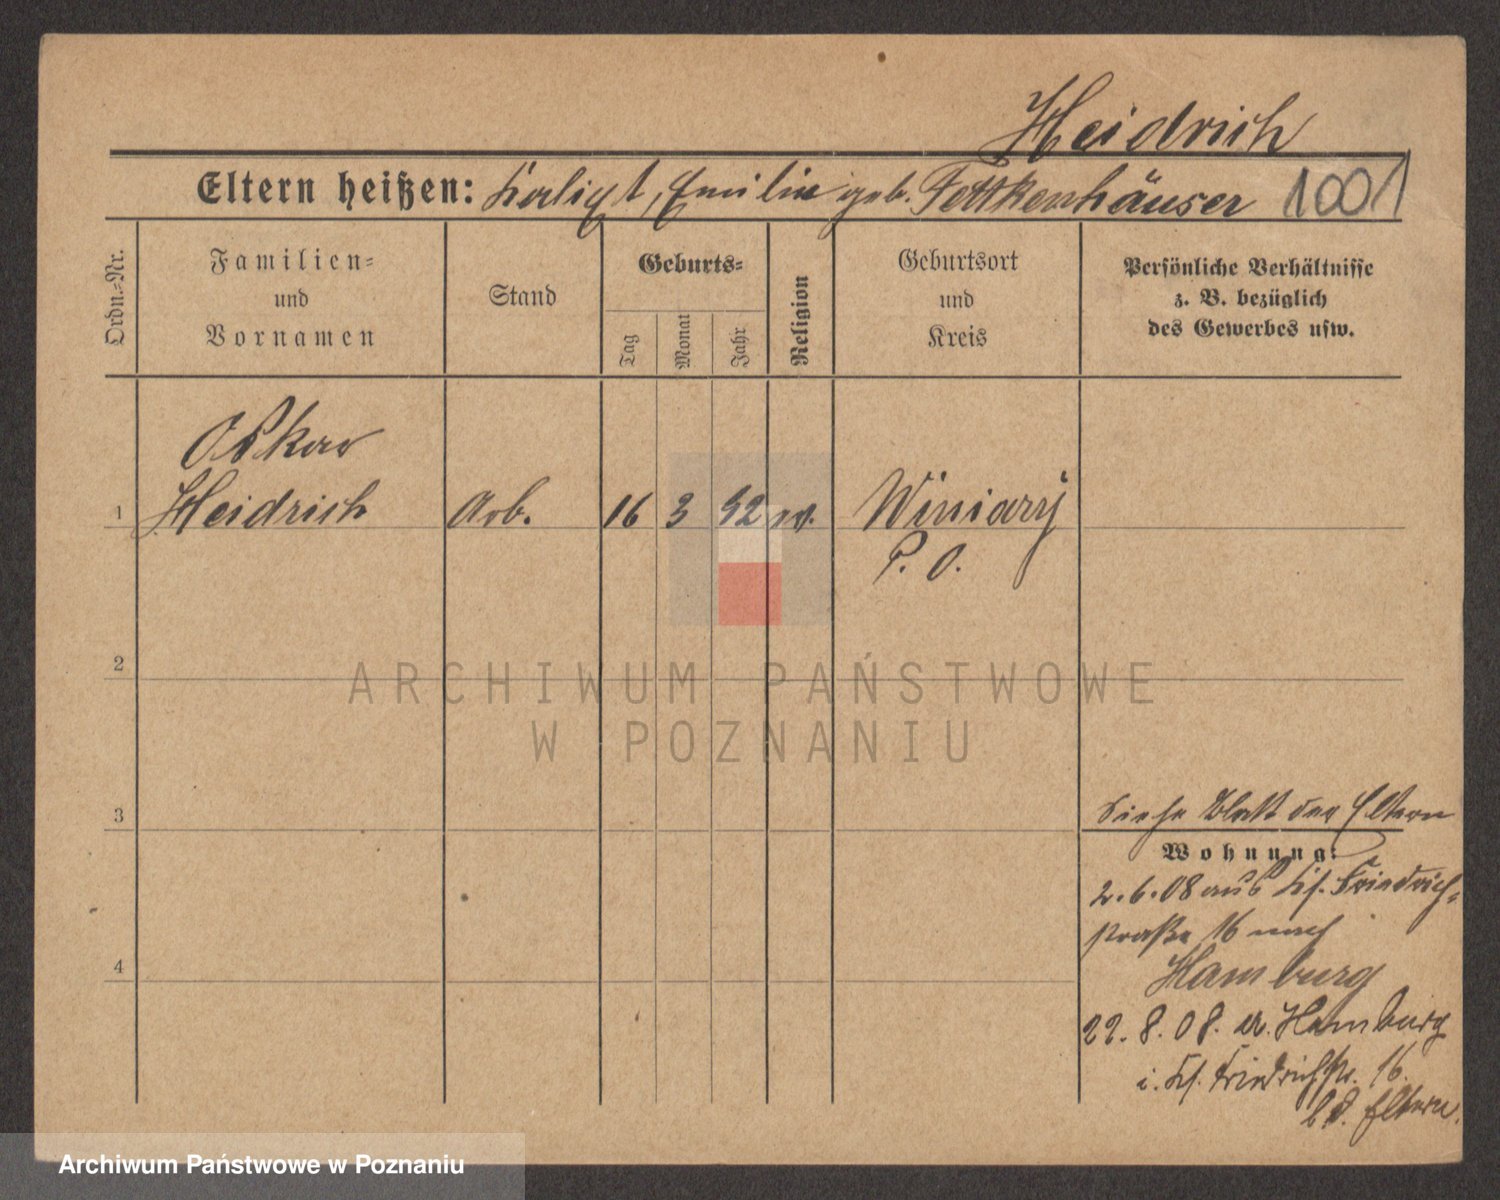 Heidrich
Eltern heißen: Emilie geb. Fettkenhäuser 1001
Ordn.-Nr.
Familien-
und
Vornamen
Stand
Geburts-
Tag
Monat
Jahr
Religion
Geburtsort
und
Kreis
Persönliche Verhältnisse
z. B. bezüglich
des Gewerbes usw.
Oskar
1 Heidrich Arb. 16 3 92 ev. Winiary
P. O.
2
3
4
Siehe Blatt der Eltern
Wohnung:
2.6.08 aus Friedrich-
straße 16 nach
Hamburg
22.8.08. a. Hamburg
i. Friedrichstr. 16.
bd. Eltern.
ARCHIWUM PAŃSTWOWE
W POZNANIU
Archiwum Państwowe w Poznaniu